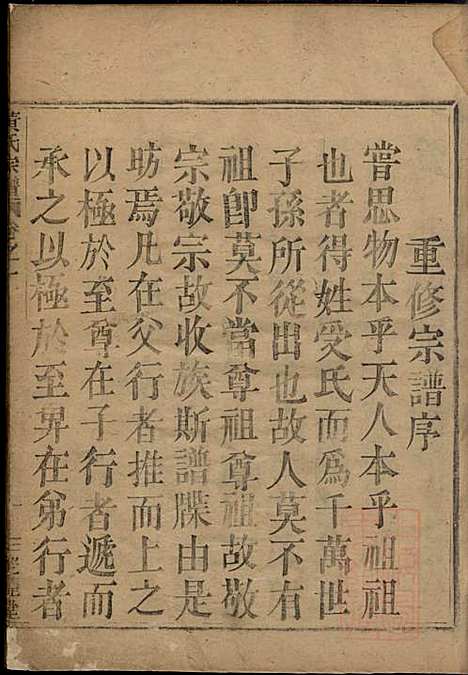 重修宗譜序
嘗思物本乎天人本乎祖祖
也者得姓受氏而為千萬世
子孫所從出也故人莫不有
祖卽莫不當尊祖尊祖故敬
宗敬宗故收族斯譜牒由是
昉焉凡在父行者推而上之
以極於至尊在子行者遞而
承之以極於至畀在弟行者
黃氏宗譜 卷之一